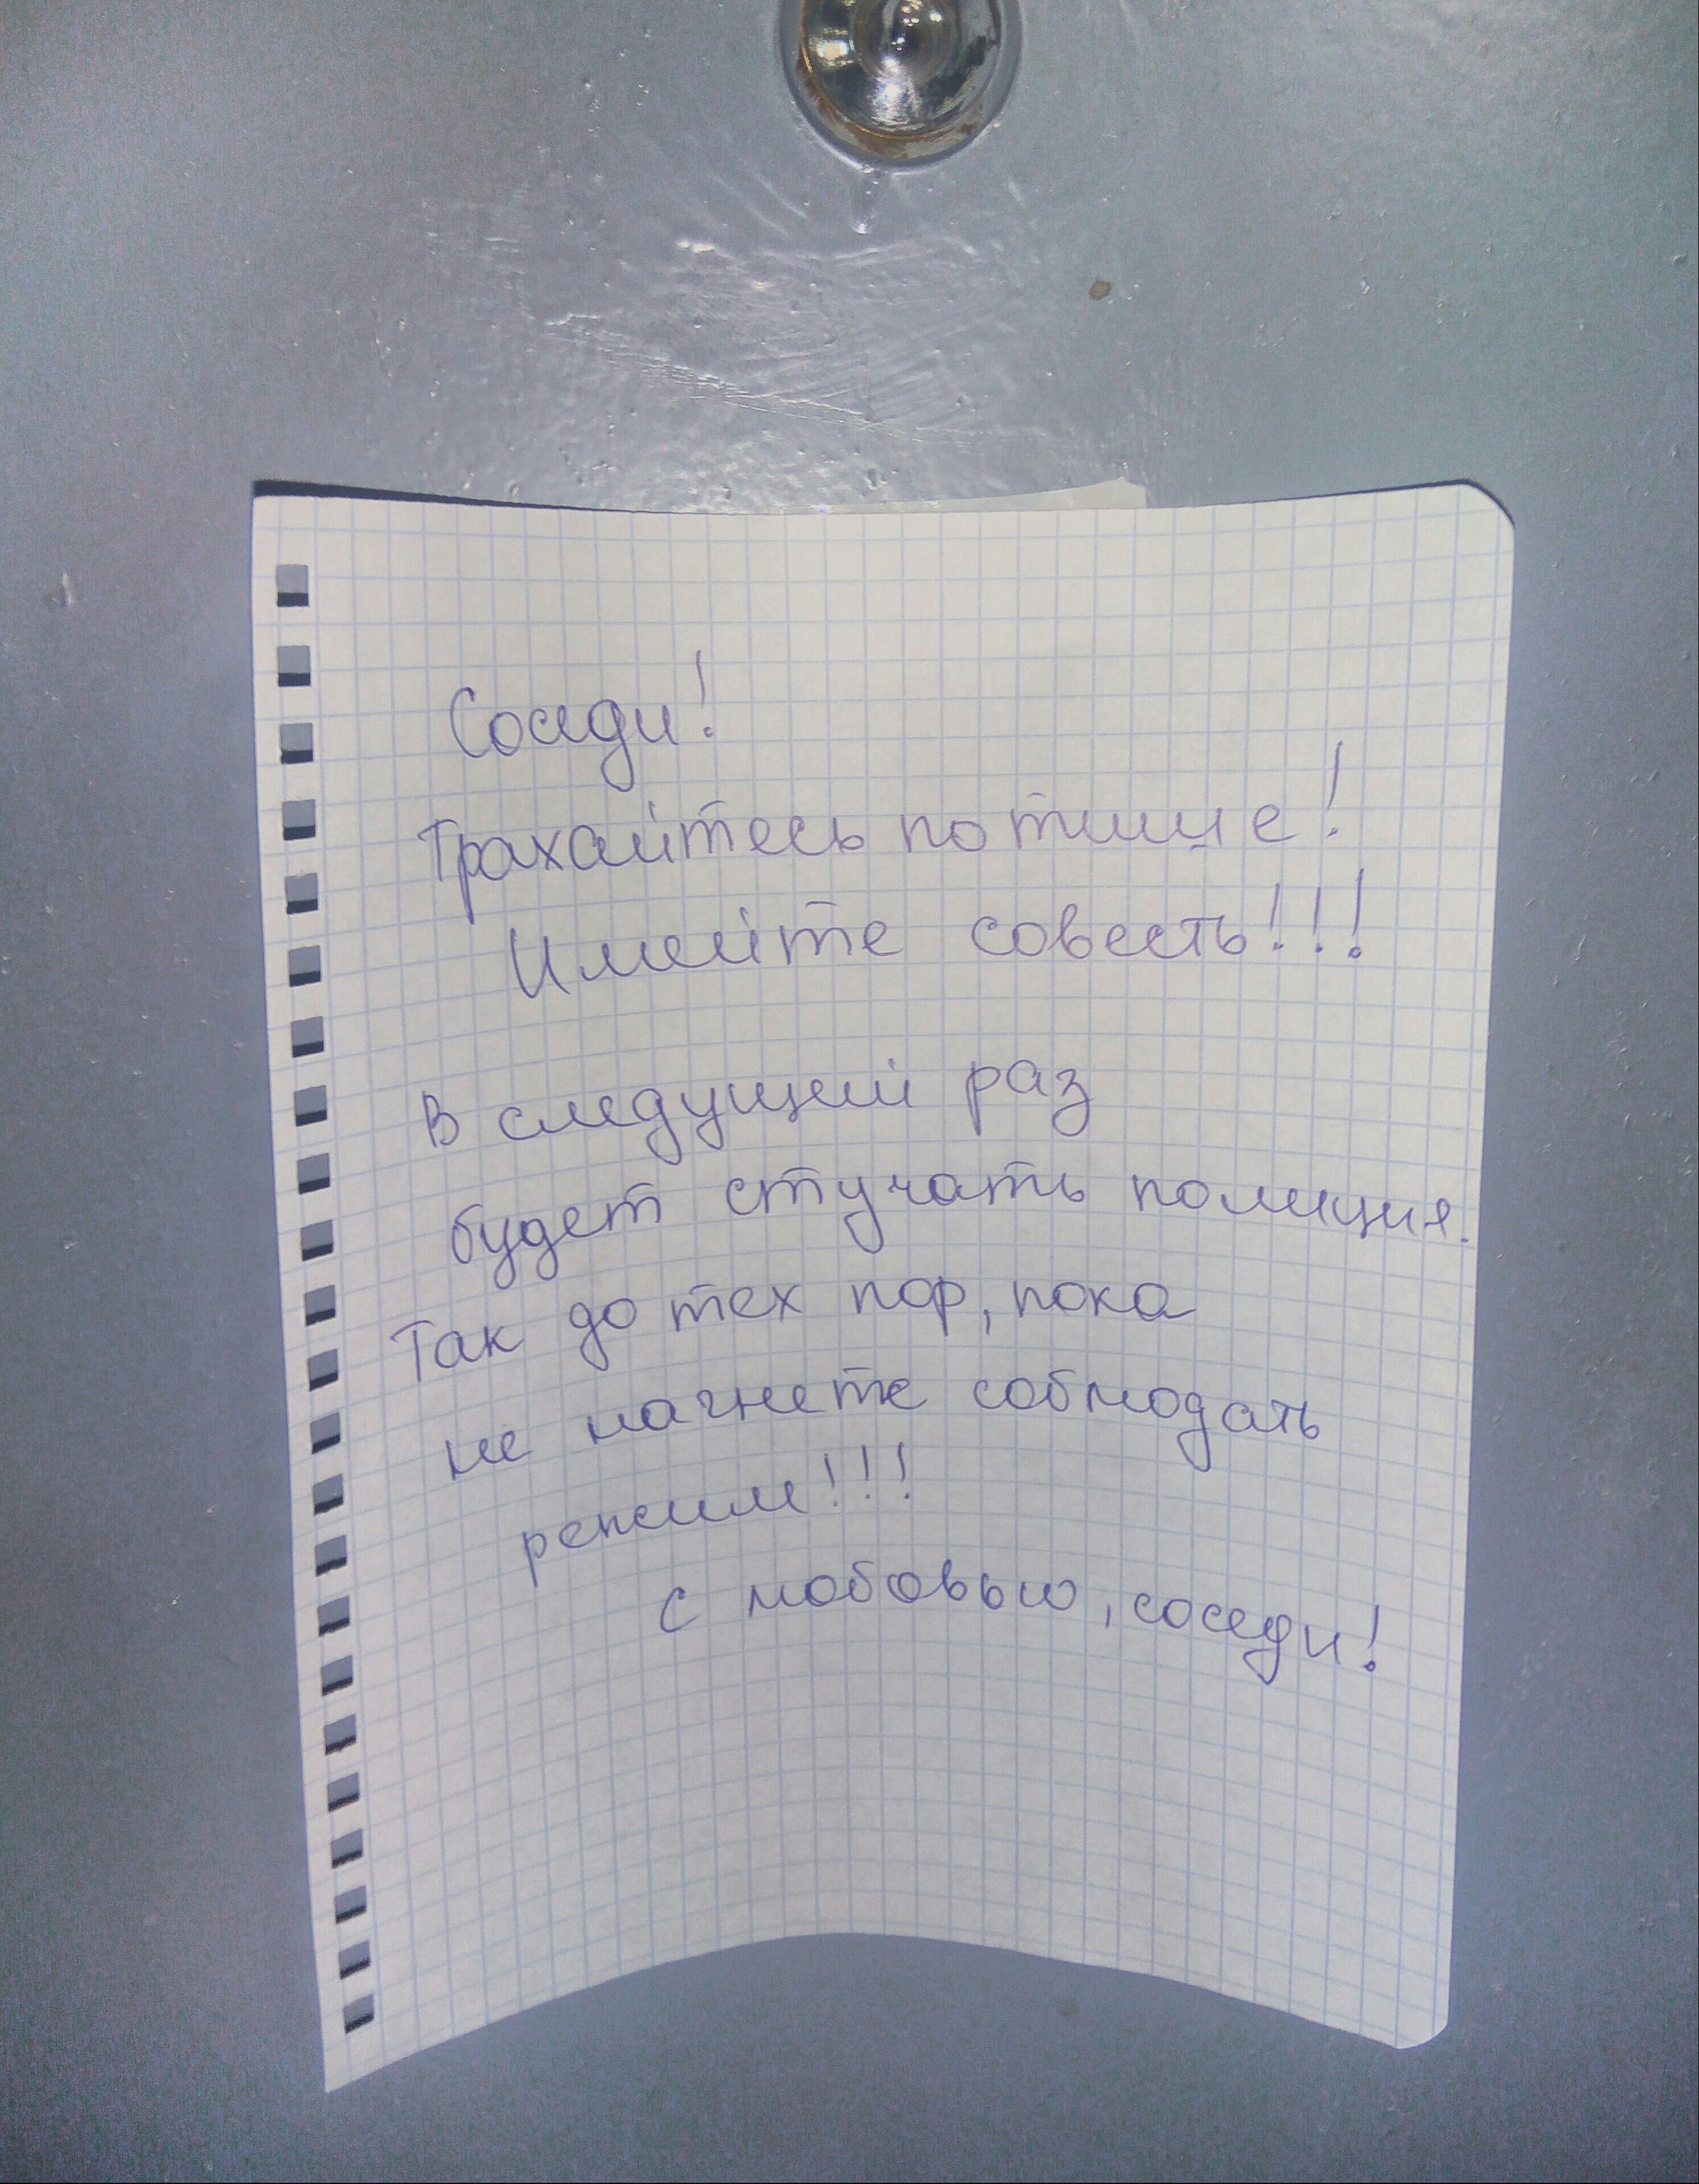 Соседи!
Трахайтесь по тише!
Имейте совесть!!!
В следущей раз
будет стучать полиция.
Так до тех пор, пока
не начнете соблюдать
режим!!!
С любовью, соседи!